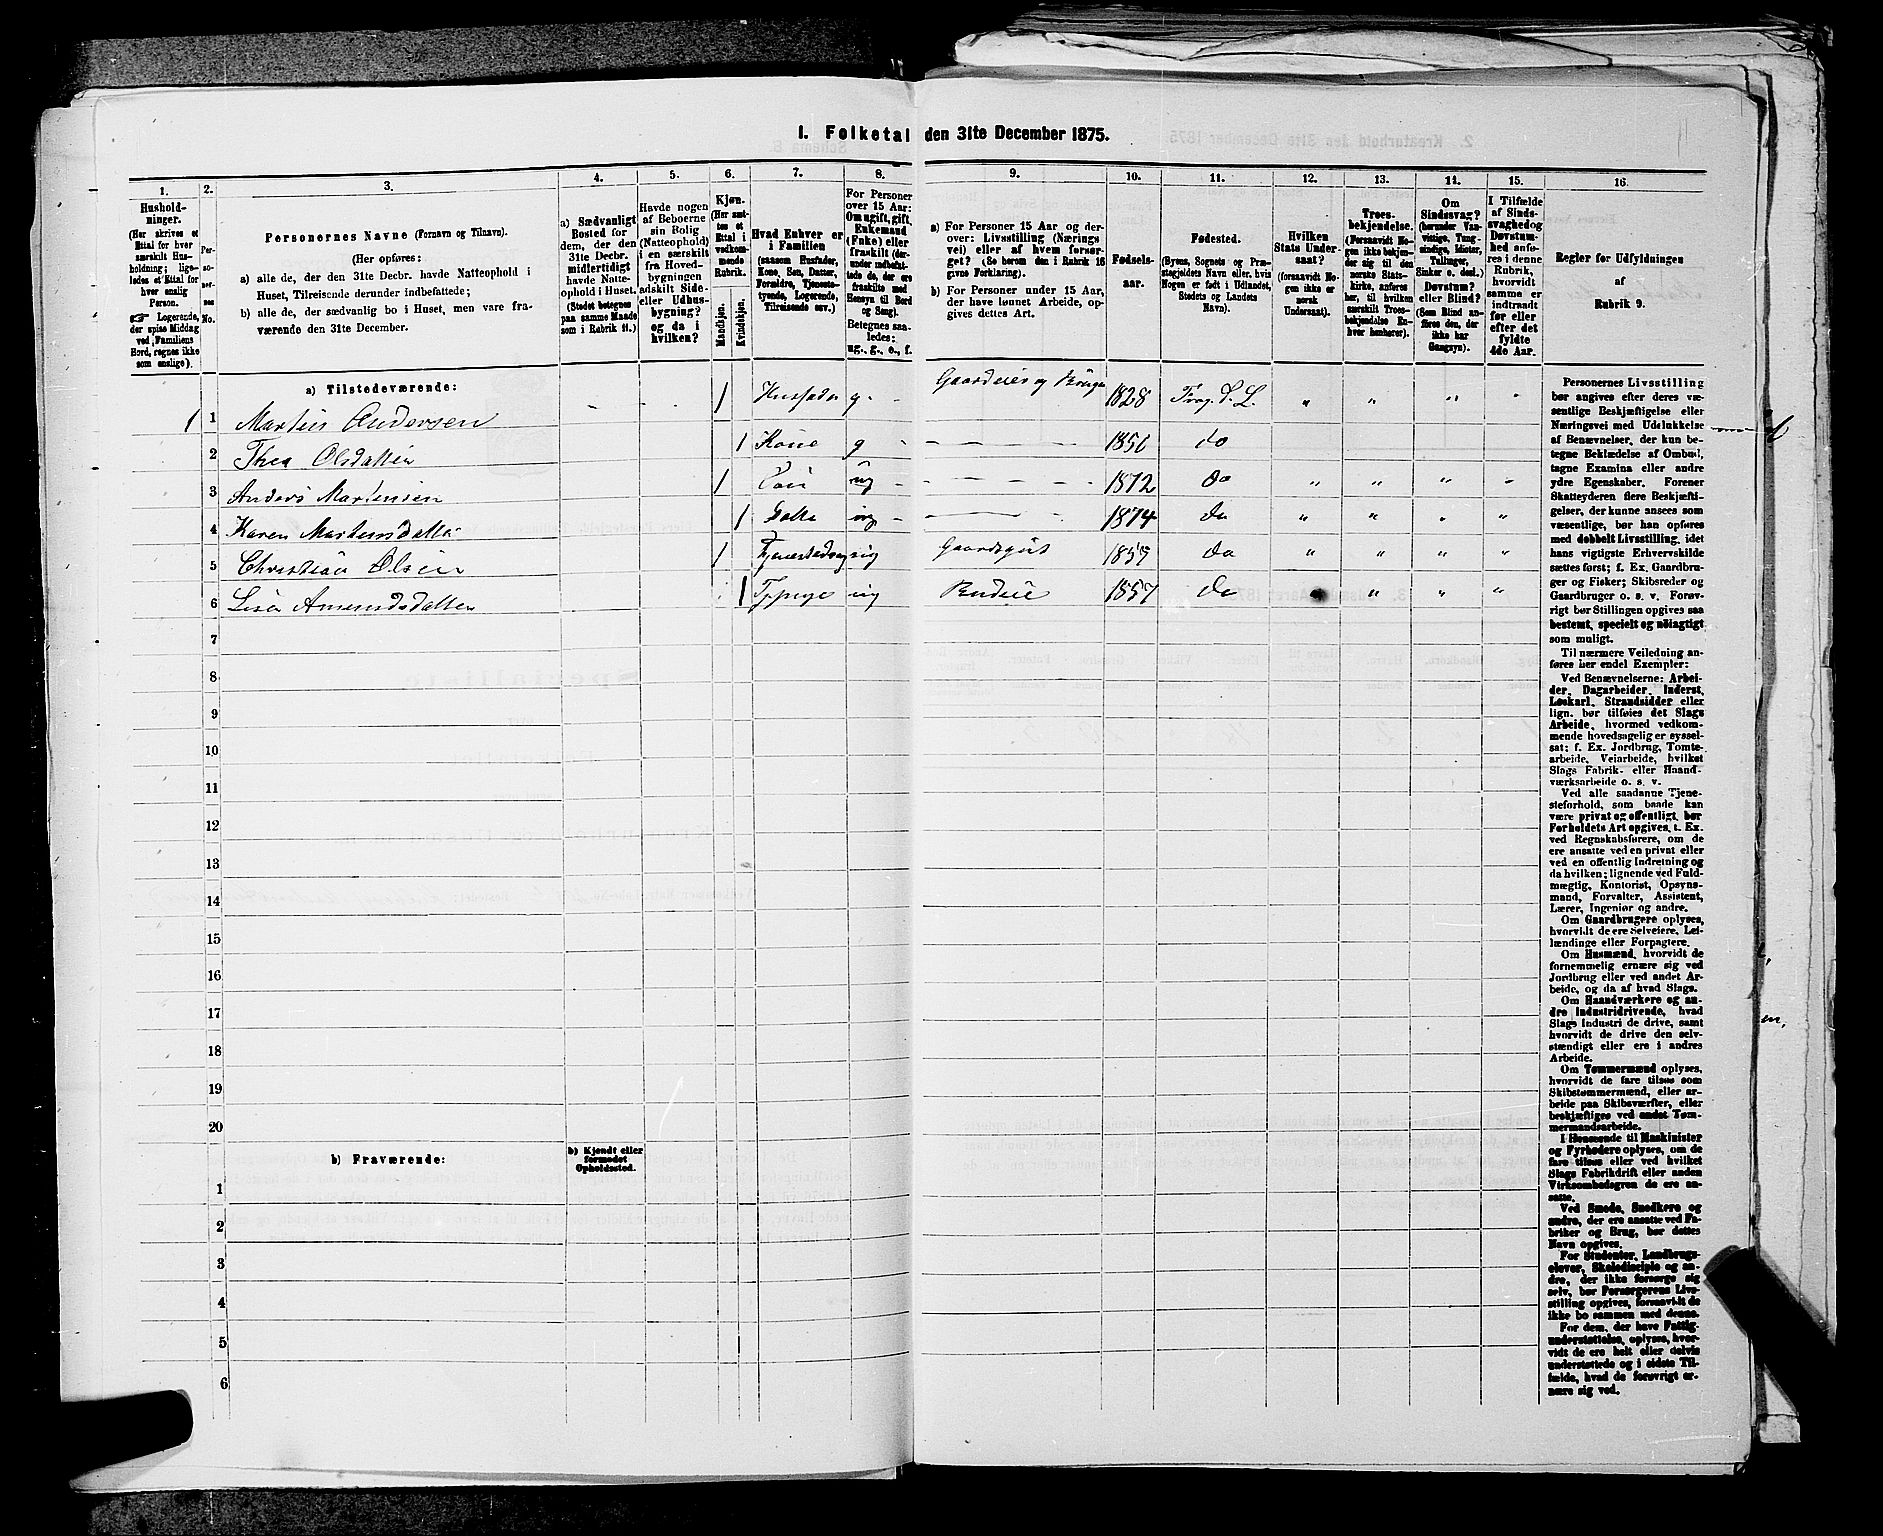 1. Folketal den 31te December 1875.
1.
Hushold-
ninger.
(Her skrives et
Ettal for hver
særskilt Hus-
holdning; lige-
ledes et Ettal for
hver enslig
Person.
☞ Logerende,
der spise Middag
ved Familiens
Bord, regnes ikke
som enslige).
2.
Per-
so-
ner-
nes
No.
3.
Personernes Navne (Fornavn og Tilnavn).
(Her opføres:
a) alle de, der den 31te Decbr. havde Natteophold i
Huset, Tilreisende derunder indbefattede;
b) alle de, der sædvanlig bo i Huset, men vare fra-
værende den 31te December.
4.
a) Sædvanligt
Bosted for
dem, der den
31te Decbr.
midlertidigt
havde Natte-
ophold i Huset.
(Stedet betegnes
paa samme Maade
som i Rubrik 11.)
5.
Havde nogen
af Beboerne
sin Bolig
(Natteophold)
i en særskilt
fra Hoved-
bygningen
adskilt Side-
eller Udhus-
bygning?
og da i
hvilken?
6.
Kjøn.
(Her sæt-
tes et
Ettal i
vedkom-
mende
Rubrik.
Mandkjøn.
Kvindekjøn.
7.
Hvad Enhver er
i Familien
(saasom Husfader,
Kone, Søn, Datter,
Forældre, Tjeneste-
tyende, Logerende,
Tilreisende osv.)
8.
For Personer
over 15 Aar:
Om ugift, gift,
Enkemand
(Enke) eller
fraskilt (der-
under indbefat-
tede de, der ere
fraskilte med
Hensyn til Bord
og Seng).
Betegnes saa-
ledes:
ug., g., e., f.
9.
a) For Personer 15 Aar og der-
over: Livsstilling (Nærings
vei) eller af hvem forsør-
get? (Se herom den i Rubrik 16
givne Forklaring).
b) For Personer under 15 Aar,
der have lønnet Arbeide, op-
gives dettes Art.
10.
Fødsels-
aar.
11.
Fødested.
(Byens, Sognets og Præ-
stegjeldets Navn eller, hvis
Nogen er født i Udlandet,
Stedets og Landets
Navn).
12.
Hvilken
Stats Under-
saat?
(forsaavidt No-
gen ikke er
norsk
Undersaat).
13.
Troes-
bekjendelse.
(Forsaavidt No-
gen ikke bekjen-
der sig til den
norske Stats-
kirke, anføres
her, til hvilken
særskilt Troes-
bekjendelse En-
hver henhører).
14.
Om
Sindssvag?
(herunder Van-
vittige, Tung-
sindige, Idioter,
Tullinger,
Sinker o. desl.)
Døvstum?
eller Blind?
(Som Blind an-
føres den, der
ikke har
Gangsyn).
15.
I Tilfælde
af Sinds-
svaghed og
Døvstum-
hed anfø-
res i denne
Rubrik,
hvorvidt
samme er
indtraadt
før eller
efter det
fyldte
4de Aar.
16.
Regler for Udfyldningen
af
Rubrik 9.
a) Tilstedeværende:
1 1 Martin Andersen - - 1 Husfader g - Gaardeier og Bruger 1828 Trog. S. L. " " " "
2 Thea Olsdatter 1 Kone g - 1856 do
3 Anders Martensen 1 Søn ug 1872 do " " " "
4 Karen Martensdatter 1 Datter ug - 1874 do " " " "
5 Christian Olsen 1 ug Gaardsgut 1857 do " " " "
6 Lisa Amundsdatter 1 ug Budeie 1857 do " " " "
7
8
9
10
11
12
13
14
15
16
17
18
19
20
b) Fraværende:
b) Kjendt eller
formodet
Opholdssted.
1
2
3
4
5
6
Personernes Livsstilling
bør angives efter deres væ-
sentlige Beskjæftigelse eller
Næringsvei med Udelukkelse
af Benævnelser, der kun be-
tegne Beklædelse af Ombud,
tagne Examina eller andre
ydre Egenskaber. Forener
Skatteyderen flere Beskjæfti-
gelser, der kunne ansees som
væsentlige, bør han opføres
med dobbelt Livsstilling, idet
hans vigtigste Erhvervskilde
sættes først; f. Ex. Gaardbru-
ger og Fisker; Skibsreder og
Gaardbruger o. s. v. Forøv-
rigt bør Stillingen opgives saa
bestemt, specielt og nøiagtigt
som muligt.
Til nærmere Veiledning an-
føres her endel Exempler:
Ved Benævnelserne: Arbei-
der, Dagarbeider, Inderst,
Løskarl, Strandsidder eller
lign. bør tilføies det Slags
Arbeide, hvormed vedkom-
mende hovedsagelig er syssel-
sat; f. Ex. Jordbrug, Tomte-
arbeide, Veiarbeide, hvilket
Slags Fabrik- eller Haand-
værksarbeide o. s. v.
Ved alle saadanne Tjene-
steforhold, som baade kan
være privat og offentligt, bør
Forholdets Art opgives, t. Ex.
ved Regnskabsførere, om de
ere ansatte ved en privat eller
ved en offentlig Indretning og
da hvilken; lignende ved Fuld-
mægtig, Kontorist, Opsyns-
mand, Forvalter, Assistent,
Lærer, Ingeniør og andre.
Om Gaardbrugere oplyses,
hvorvidt de ere Selveiere, Lei-
lændinge eller Forpagtere.
Om Husmænd, hvorvidt de
fornemmelig ernære sig ved
Jordbrug eller ved andet Ar-
beide, og da af hvad Slags.
Om Haandværkere og an-
dre Industridrivende, hvad
Slags Industri de drive, samt
hvorvidt de drive den selv-
stændigt eller ere i andres
Arbeide.
Om Tømmermænd oplyses,
hvorvidt de fare tilsøs som
Skibstømmermænd, eller ar-
beide paa Skibsværfter, eller
beskjæftiges ved andet Tøm-
mermandsarbeide.
I Henseende til Maskinister
og Fyrbødere oplyses, om de
fare tilsøs eller ved hvilket
Slags Fabrikdrift eller anden
Virksomhedsgren de ere an-
satte.
Ved Smede, Snedkere og
andre, der ere ansatte ved Fa-
briker og Brug, bør dettes
Navn opgives.
For Studenter, Landbrugs-
elever, Skoledisciple og an-
dre, der ikke forsørge sig
selv, bør Forsørgerens Livs-
stilling opgives, forsaavidt de
ikke bo sammen med denne.
For dem, der have Fattig-
understøttelse, oplyses, hvor-
vidt de ere helt eller delvis
understøttede og i sidste Til-
fælde, hvad de forøvrigt er-
nære sig ved.